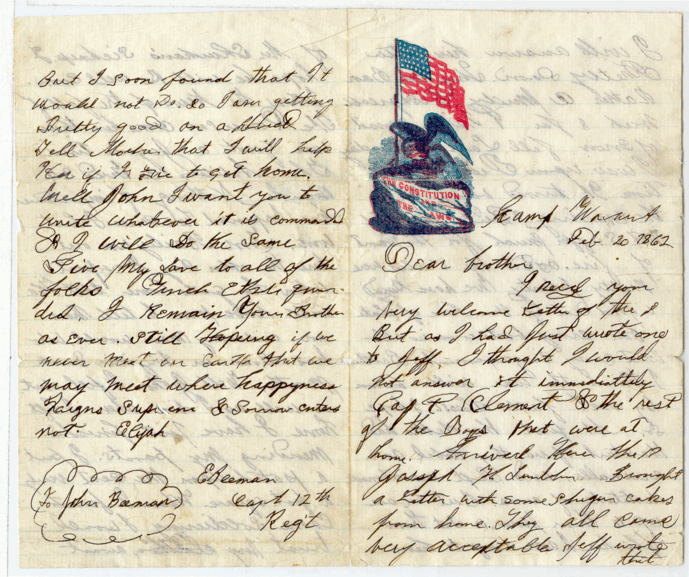 THE CONSTITUTION
AND
THE LAWS
Camp Wa
Feb. 20 1862
Dear brother
I recd your
very welcome Letter of the 8
But as I had Just wrote one
to Jeff. I thought I would
not answer it immediately
Cap. P. Clement & the rest
of the Boys that were at
home. Arrived Here the 17
Joseph H Brought
a Letter with some Shugar cakes
from home. They all came
very acceptable Jeff wrote
that
But I Soon found that It
would not Do. So I am getting
Pretty good on a
Tell Mother that I will help
if I Live to get home.
Well John I want you to
write whatever it is commenced
& I will Do the Same
Give My Love to all of the
folks
I Remain Your Brother
as Ever. Still Hopeing if we
never meet on Earth that we
may meet where happyness
Raigns Supreme & Sorrow enters
not. Elijah
E Beeman
Capt 12th
Regt
To John Beeman